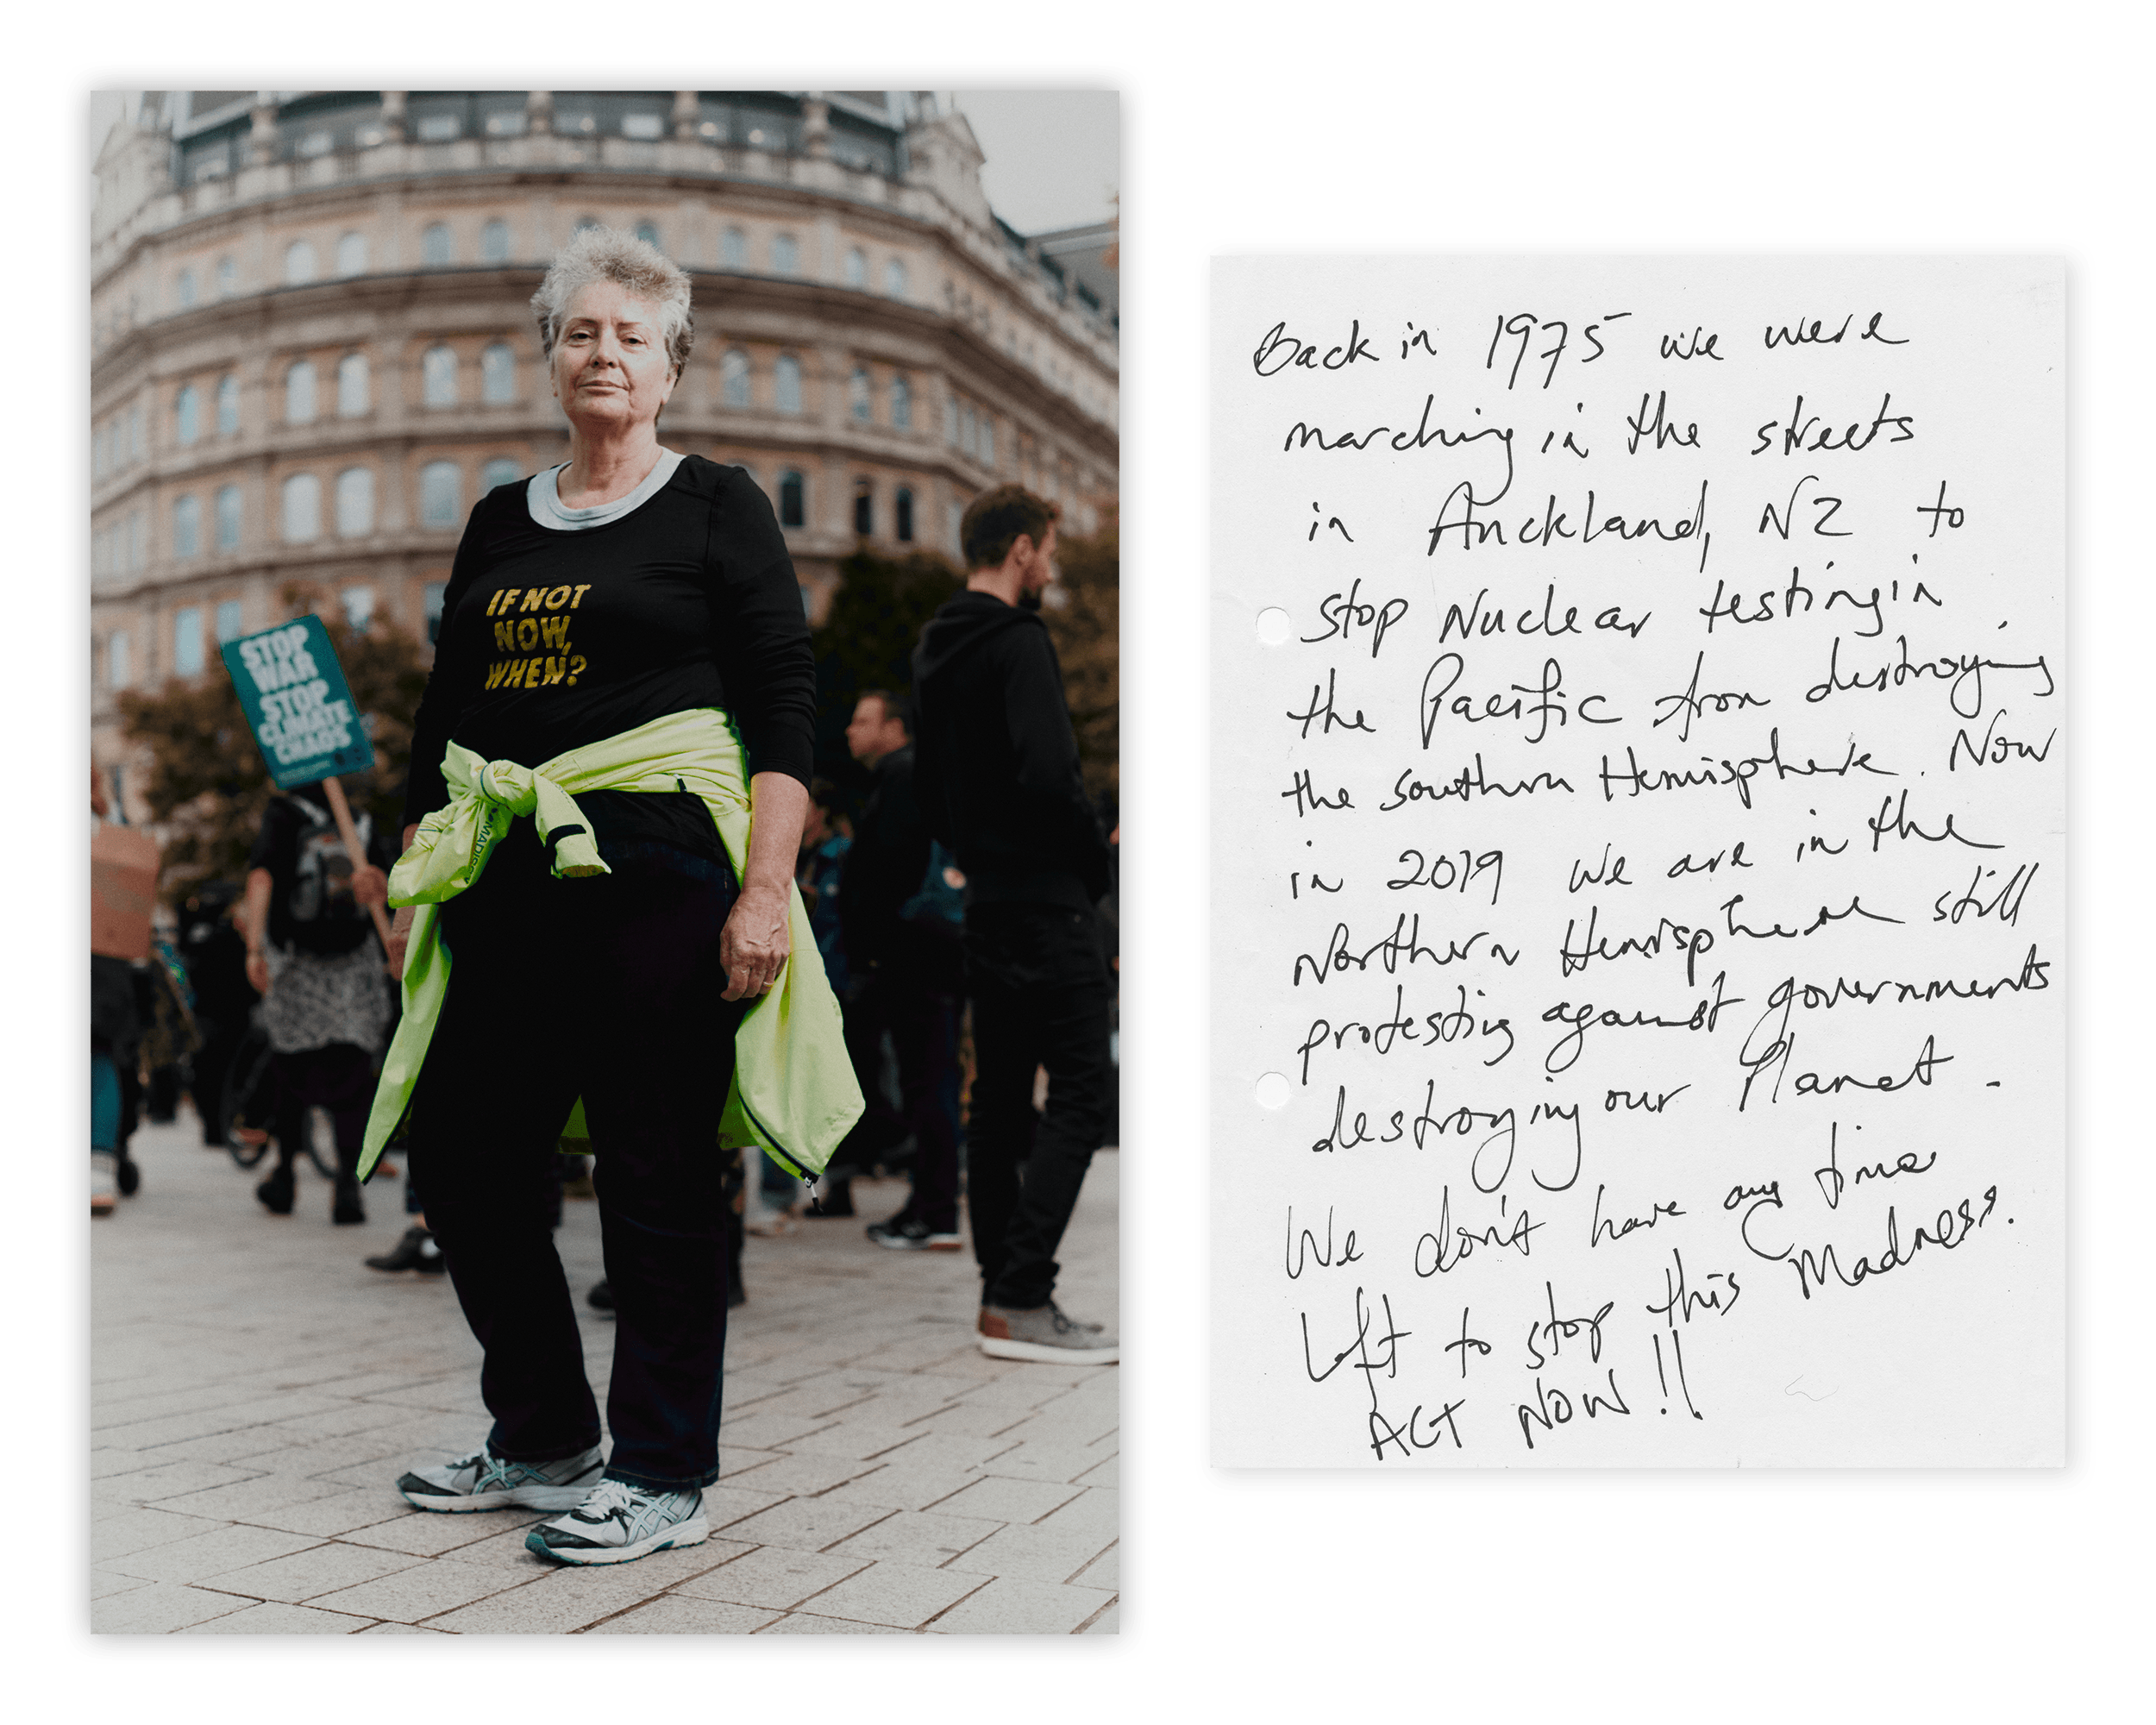 STOP
WAR
STOP
CLIMATE
CHAOS
IF NOT
NOW,
WHEN?
Back in 1975 we were
marching in the streets
in Auckland, NZ to
stop Nuclear testing in
the Pacific from destroying
the southern Hemisphere. Now
in 2019 we are in the
Northern Hemisphere still
protesting against governments
destroying our Planet.
We don't have any time
Left to stop this Madness.
ACT NOW!!